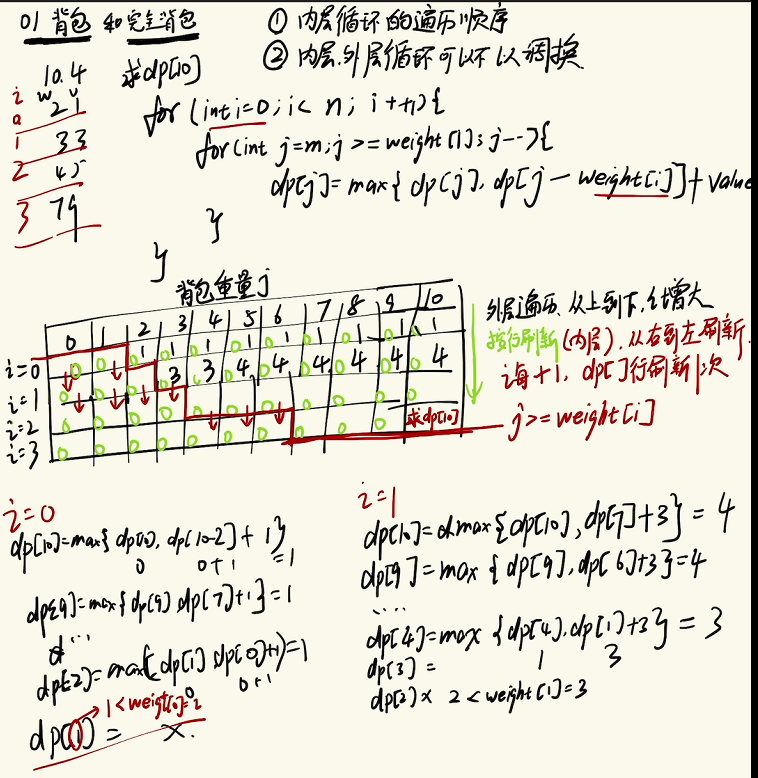 01 背包 和 完全背包
① 内层循环的遍历顺序
② 内层.外层循环可以不以调换.
10.4
求dp[10]
i w v
0 2 1
1 3 3
2 4 5
3 7 9
for (int i=0; i< n; i++){
for(int j=m; j >= weight[i]; j--){
dp[j]=max{ dp[j], dp[j - weight[i]]+ value
}
}
背包重量j
0 1 2 3 4 5 6 7 8 9 10
i=0 0 0 0 1 0 1 0 1 0 1 0 1 0 1 0 1 0 1 0 1
i=1 3 3 4 4 4 4 4 4
i=2 求dp[10]
i=3 0 0 0 0 0 0 0 0 0
外层遍历. 从上到下, i增大
按行刷新(内层), 从右到左刷新.
i每+1, dp[]行刷新1次
j>=weight[i]
i=0
dp[10]=max{ dp[10], dp[10-2]+ 1} =1
0 0+1
dp[9]=max{dp[9] dp[7]+1}=1
...
dp[2]=max{dp[1] dp[0]+1}=1
0 0+1
1<weight[0]=2
dp[1] = ×.
i=1
dp[10]=max{dp[10], dp[7]+3} = 4
dp[9]=max {dp[9], dp[6]+3}=4
....
dp[4]=max {dp[4], dp[1]+3} = 3
1 3
dp[3] =
dp[2] × 2 < weight[1]=3